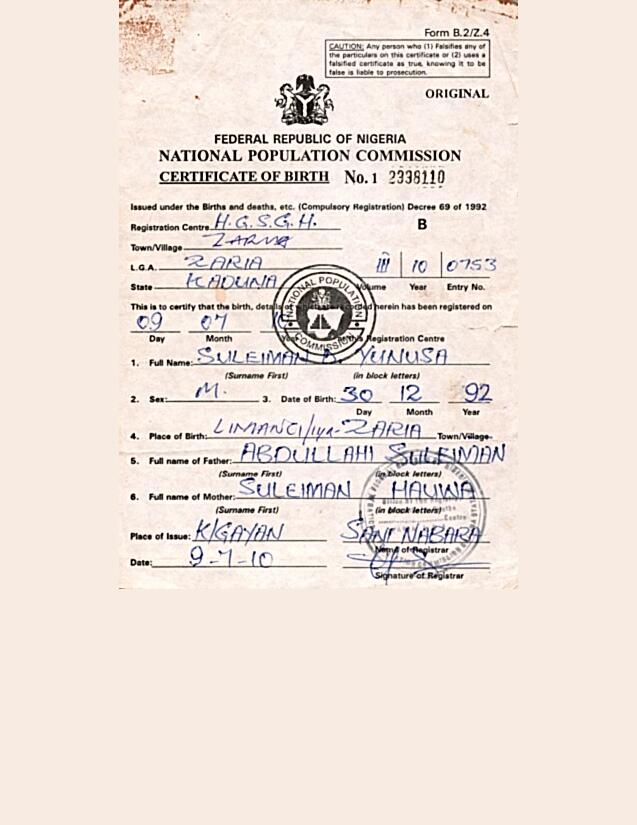 Form B.2/Z.4
CAUTION: Any person who (1) Falsifies any of
the particulars on this certificate or (2) uses a
falsified certificate as true, knowing it to be
false is liable to prosecution.
ORIGINAL
FEDERAL REPUBLIC OF NIGERIA
NATIONAL POPULATION COMMISSION
CERTIFICATE OF BIRTH No. 1 2338110
Issued under the Births and deaths, etc. (Compulsory Registration) Decree 69 of 1992
Registration Centre H.G.S.G.H. B
Town/Village ZARIA
L.G.A. ZARIA III 10 0753
State KADUNA Volume Year Entry No.
This is to certify that the birth, details of which recorded herein has been registered on
09 07
Day Month Registration Centre
1. Full Name: SULEIMAN B. YUNUSA
(Surname First) (in block letters)
2. Sex: M. 3. Date of Birth: 30 12 92
Day Month Year
4. Place of Birth: LIMANCI ZARIA Town/Village
5. Full name of Father: ABDULLAHI SULEIMAN
(Surname First) (in block letters)
6. Full name of Mother: SULEIMAN HAUWA
(Surname First) (in block letters)
Place of Issue: K/GAYAN SANI NABARA
Name of Registrar
Date: 9-7-10
Signature of Registrar
NATIONAL POPULATION COMMISSION